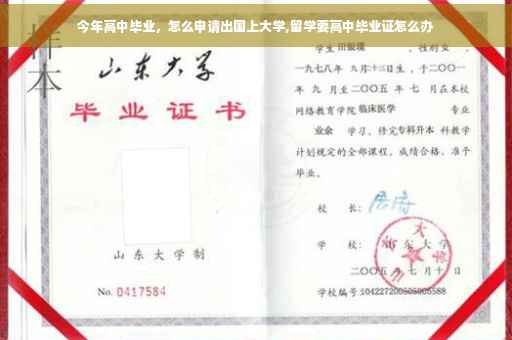 今年高中毕业，怎么申请出国上大学,留学要高中毕业证怎么办
样本
山东大学
毕业证书
山东大学制
No. 0417584
学生 田银瑞 ，性别 女 ，
一九七八年 九月十三日生，于二〇〇一
年 九 月至二〇〇五 年 七 月在本校
网络教育学院 临床医学 专业
业余 学习，修完专科升本 科教学
计划规定的全部课程，成绩合格，准予
毕业。
校 长：
学 校： 山 东 大 学
二〇〇五 年 七 月 十 日
学校编号:104227200505005588